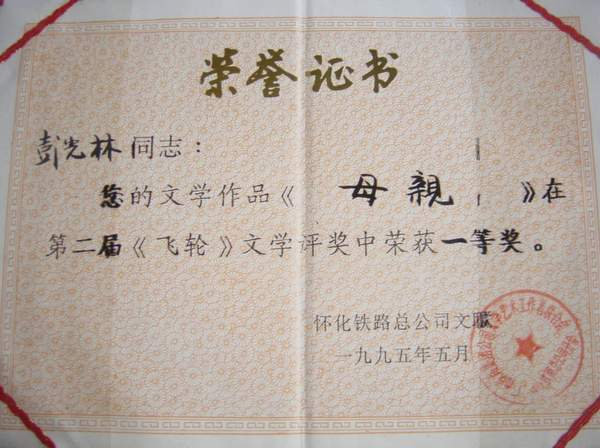 荣誉证书
彭光林同志：
您的文学作品《母親》在
第二届《飞轮》文学评奖中荣获一等奖。
怀化铁路总公司文联
一九九五年五月